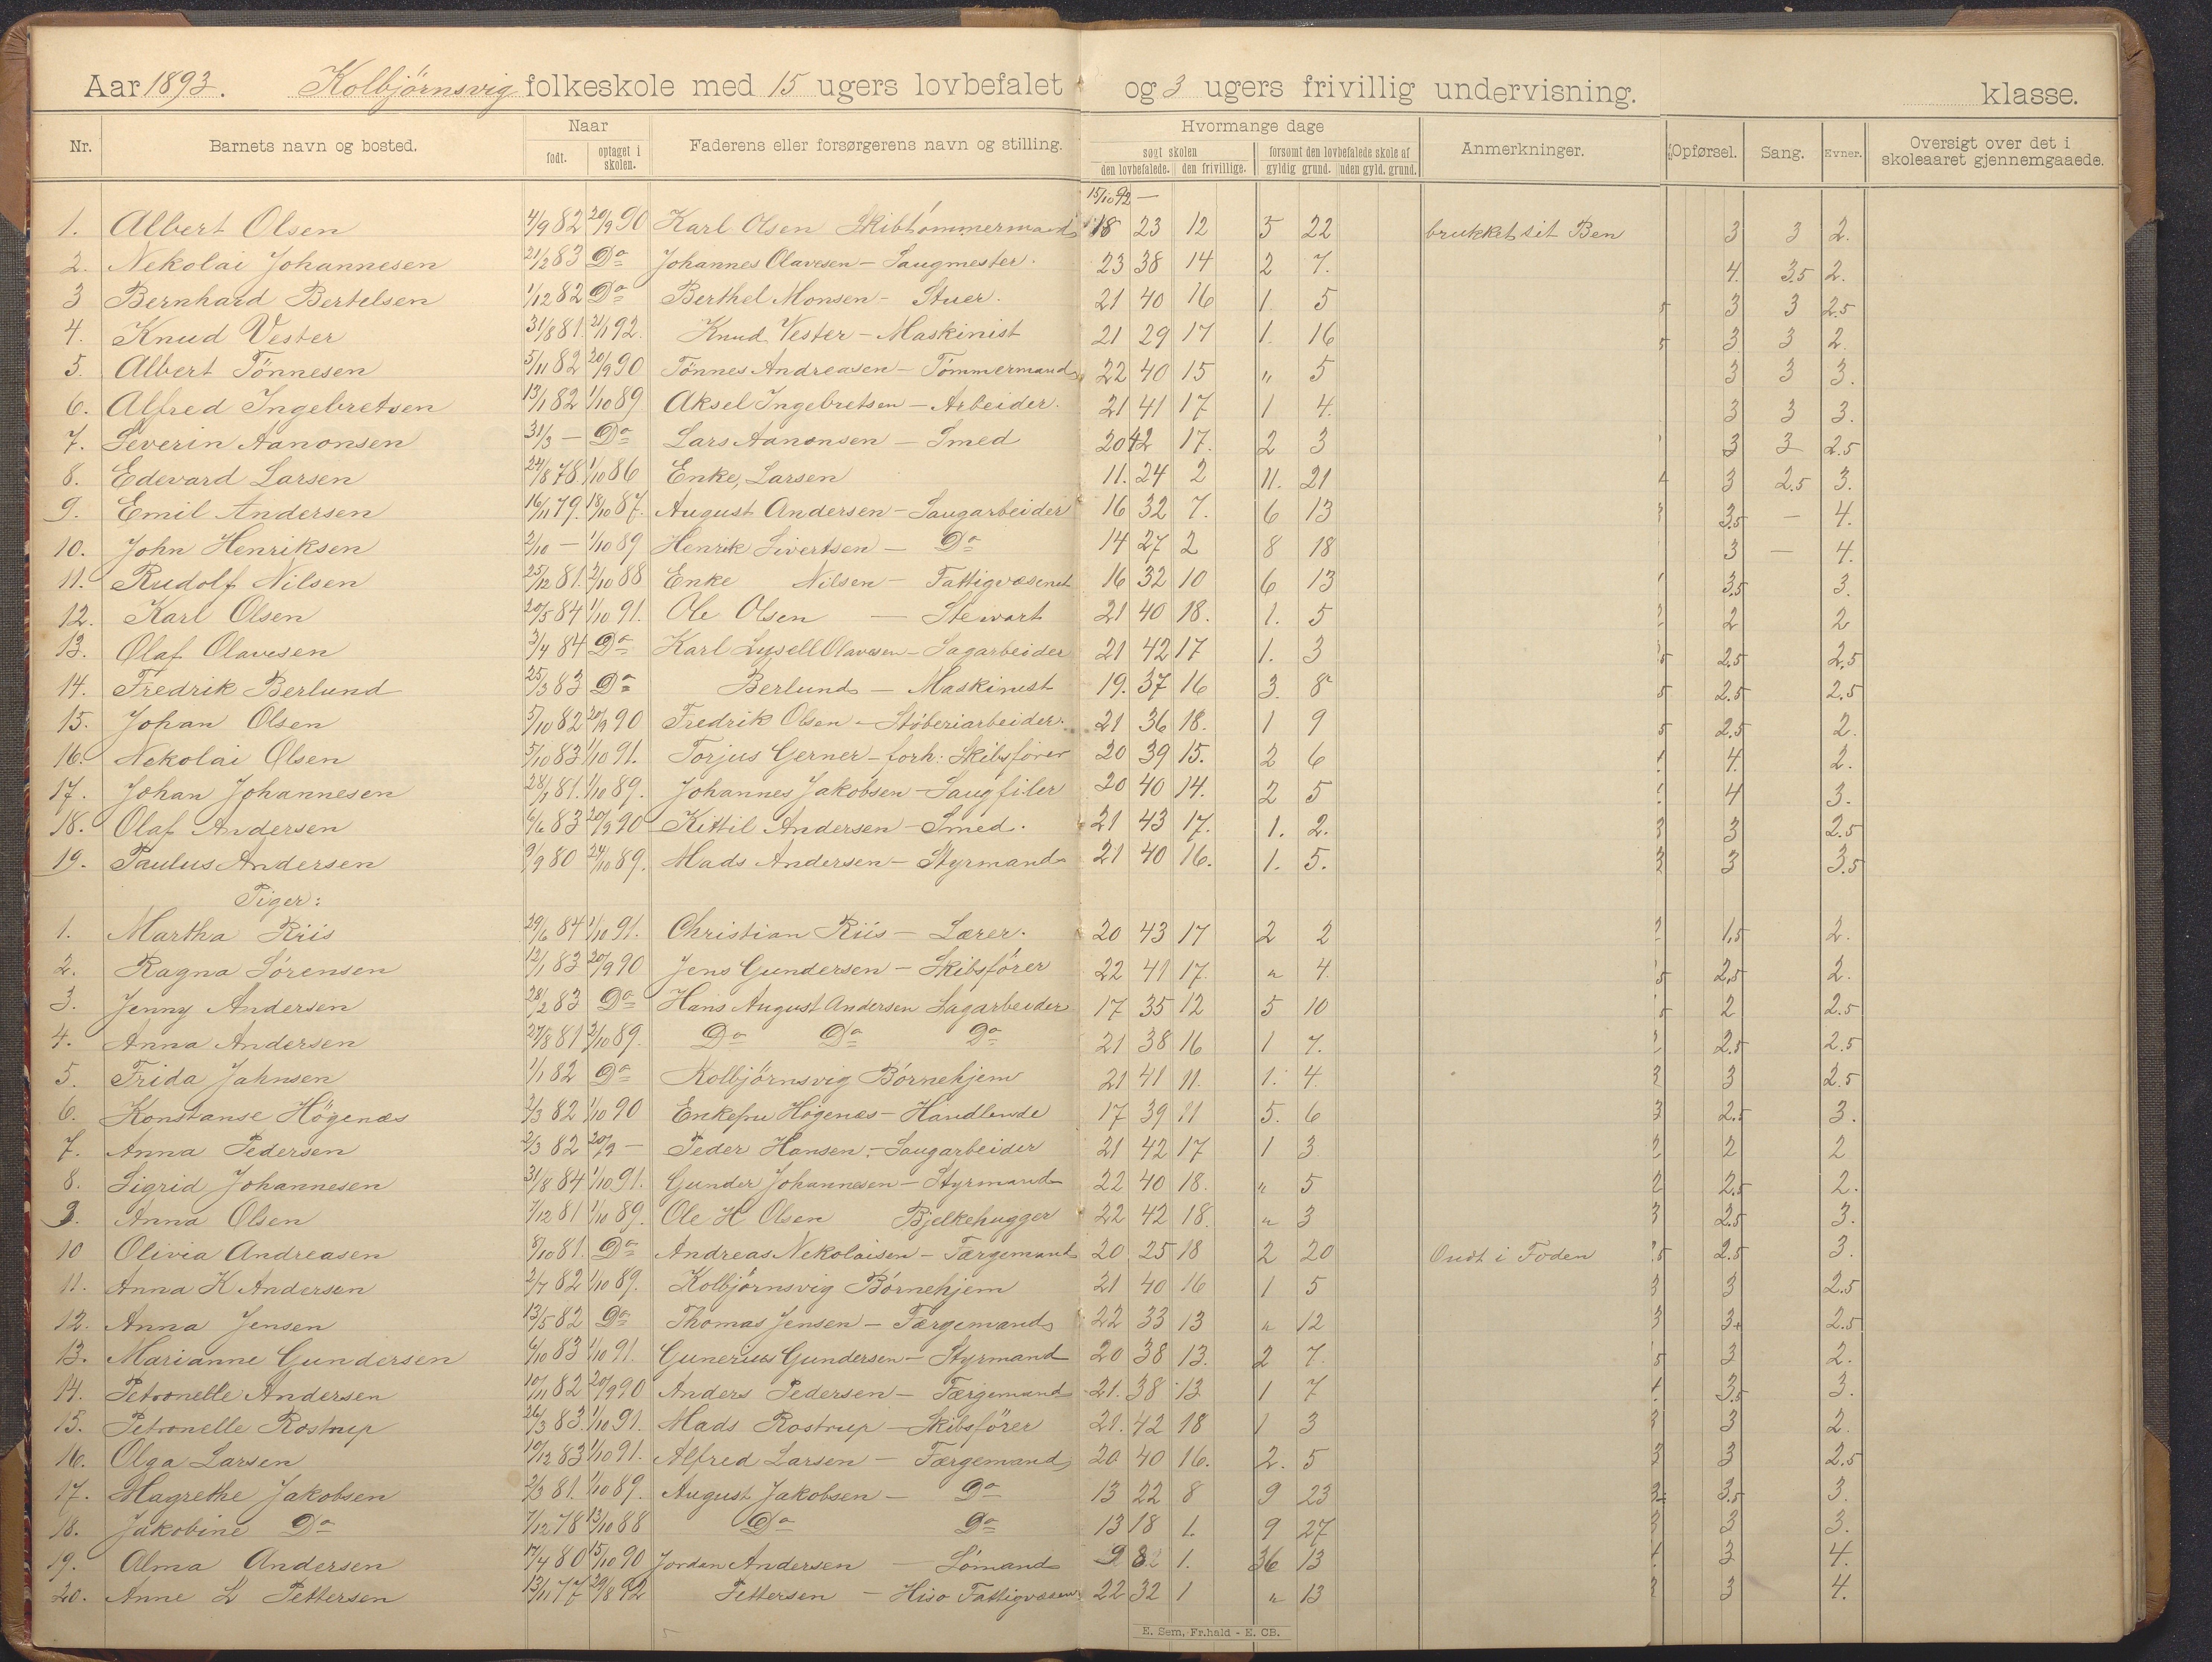 Aar 1893. Kolbjörnsvig folkeskole med 15 ugers lovbefalet og 3 ugers frivillig undervisning. klasse.
Nr. Barnets navn og bosted. Naar født. optaget i skolen. Faderens eller forsørgerens navn og stilling. Hvormange dage søgt skolen den lovbefalede. den frivillige. forsømt den lovbefalede skole af gyldig grund. uden gyld. grund. Anmerkninger. Opførsel. Sang. Evner. Oversigt over det i skoleaaret gjennemgaaede.
15/10 92 —
1. Albert Olsen 4/9 82 20/9 90 Karl Olsen Skibtömmermand 18 23 12 5 22 brukket sit Ben 3 3 2.
2. Nekolai Johannesen 21/2 83 Do Johannes Olavesen — Saugmester. 23 38 14 2 7. 4. 3.5 2.
3 Bernhard Bertelsen 1/12 82 Do Berthel Monsen — Stuer. 21 40 16 1. 5 3 3 2.5
4. Knud Vester 31/8 81. 21/1 92. Knud Vester — Maskinist 21 29 17 1. 16 3 3 2.
5. Albert Tönnesen 5/11 82 20/9 90 Tönnes Andreasen — Tömmermand 22 40 15 " 5 3 3 3.
6. Alfred Ingebretsen 13/1 82 1/10 89 Aksel Ingebretsen — Arbeider. 21 41 17 1 4. 3 3 3.
7. Severin Aanonsen 31/3 — Do Lars Aanonsen — Smed 20 42 17. 2 3 3 3 2.5
8. Edevard Larsen 24/8 78. 1/10 86 Enke, Larsen 11. 24 2 11. 21 3 2.5 3.
9. Emil Andersen 16/11 79. 18/10 87. August Andersen — Saugarbeider 16 32 7. 6 13 3.5 — 4.
10. John Henriksen 2/10 — 1/10 89 Henrik Sivertsen — Do 14 27 2 8 18 3 — 4.
11. Rudolf Nilsen 25/12 81. 2/10 88 Enke Nilsen — Fattigvæsenet 16 32 10 6 13 3.5 3.
12. Karl Olsen 20/5 84 1/10 91. Ole Olsen — Stewart 21 40 18. 1. 5 2 2
13. Olaf Olavesen 3/4 84 Do Karl Lysell Olavesen — Sagarbeider 21 42 17 1. 3 2.5 2.5
14. Fredrik Berlund 25/3 83 Do Berlund — Maskinist 19. 37 16 3. 8 2.5 2.5
15. Johan Olsen 5/10 82 20/9 90 Fredrik Olsen — Stöberiarbeider. 21 36 18. 1 9 2.5 2.
16. Nekolai Olsen 5/10 83 1/10 91. Torjus Gerner — forh: Skibsförer 20 39 15. 2 6 4. 2.
17. Johan Johannesen 28/1 81. 1/10 89. Johannes Jakobsen — Saugfiler 20 40 14. 2 5 4 3.
18. Olaf Andersen 6/6 83 20/9 90 Kittil Andersen — Smed. 21 43 17. 1. 2. 3 2.5
19. Paulus Andersen 9/9 80 24/10 89. Mads Andersen — Styrmand 21 40 16. 1. 5. 3 3.5
Piger:
1. Martha Riis 29/6 84 1/10 91. Christian Riis — Lærer. 20 43 17 2 2 1,5 2.
2. Ragna Sörensen 12/1 83 20/9 90 Jens Gundersen — Skibsförer 22 41 17. " 4. 2,5 2.
3. Jenny Andersen 28/2 83 Do Hans August Andersen Sagarbeider 17 35 12 5 10 2 2.5
4. Anna Andersen 27/8 81 2/10 89. Do Do Do 21 38 16 1 7. 2.5 2.5
5. Frida Jahnsen 1/1 82 Do Kolbjörnsvig Börnehjem 21 41 11. 1. 4. 3 2.5
6. Konstanse Högenæs 2/3 82 1/10 90 Enkefru Högenæs — Handlende 17 39 11 5. 6 2.5 3.
7. Anna Pedersen 2/3 82 20/9 — Peder Hansen — Saugarbeider 21 42 17 1 3 2 2
8. Sigrid Johannesen 31/8 84 1/10 91. Gunder Johannesen — Styrmand 22 40 18. " 5 2.5 2.
9. Anna Olsen 7/12 81 1/10 89. Ole H Olsen Bjelkehugger 22 42 18. " 3 2.5 3.
10 Olivia Andreasen 8/10 81. Do Andreas Nekolaisen — Færgemand 20 25 18 2 20 Ondt i Foden 2.5 3.
11. Anna K Andersen 2/7 82 1/10 89. Kolbjörnsvig Börnehjem 21 40 16 1 5 3 2.5
12. Anna Jensen 13/5 82 Do Thomas Jensen — Færgemand 22 33 13 " 12 3+ 2.5
13. Marianne Gundersen 6/10 83 1/10 91. Gunerius Gundersen — Styrmand 20 38 13. 2 7. 3 2.
14. Petronelle Andersen 10/11 82 20/9 90 Anders Pedersen — Færgemand 21. 38 13 1 7 3.5 3.
15. Petronelle Rostrup 26/3 83. 1/10 91. Mads Rostrup — Skibsförer 21. 42 18 1 3 3 2.
16. Olga Larsen 10/12 83 1/10 91. Alfred Larsen — Færgemand 20 40 16. 2. 5 3 2.5
17. Magrethe Jakobsen 2/3 81. 1/10 89. August Jakobsen — Do 13 22 8 9 23 3.5 3.
18. Jakobine Do 7/12 78 13/10 88 Do Do 13 18 1. 9 27 3 3.
19. Alma Andersen 17/4 80 15/10 90 Jorden Andersen — Sömand 1. 36 13 3 4.
20. Anne L Pettersen 13/11 77 29/8 92 Pettersen — Hisö Fattigvæsen 22 32 1 " 13 3 4.
E. Sem, Fr.hald - E. CB.